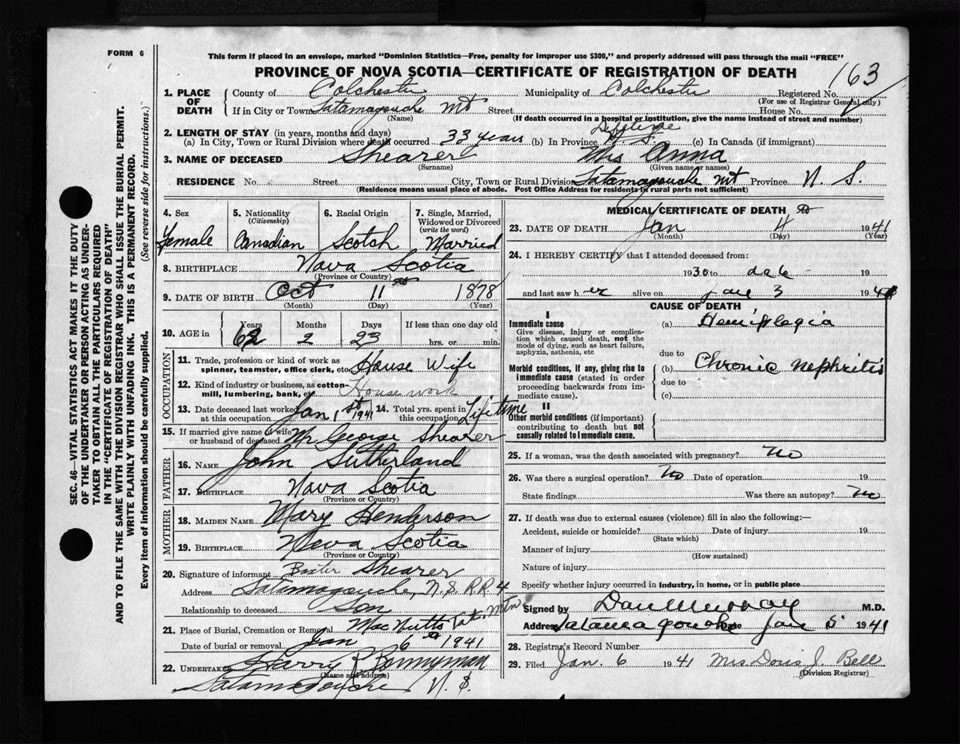 FORM 6
This form if placed in an envelope, marked "Dominion Statistics—Free, penalty for improper use $300," and properly addressed will pass through the mail "FREE"
PROVINCE OF NOVA SCOTIA—CERTIFICATE OF REGISTRATION OF DEATH
163
1. PLACE OF DEATH
County of Colchester Municipality of Colchester Registered No.
(For use of Registrar General only)
If in City or Town Tatamagouche Mt Street House No.
(Name) (If death occurred in a hospital or institution, give the name instead of street and number)
2. LENGTH OF STAY (in years, months and days)
(a) In City, Town or Rural Division where death occurred 33 years (b) In Province N. S. (c) In Canada (if immigrant)
3. NAME OF DECEASED Shearer Mrs Anna
(Surname) (Given name or names)
RESIDENCE No. Street City, Town or Rural Division Tatamagouche Mt Province N. S.
(Residence means usual place of abode. Post Office Address for residents in rural parts not sufficient)
4. Sex Female
5. Nationality (Citizenship) Canadian
6. Racial Origin Scotch
7. Single, Married, Widowed or Divorced (write the word) Married
8. BIRTHPLACE Nova Scotia
(Province or Country)
9. DATE OF BIRTH Oct 11th 1878
(Month) (Day) (Year)
10. AGE in Years Months Days If less than one day old
62 2 23 hrs. or min.
OCCUPATION
11. Trade, profession or kind of work as spinner, teamster, office clerk, etc. House Wife
12. Kind of industry or business, as cotton-mill, lumbering, bank, etc. House work
13. Date deceased last worked at this occupation Jan 1st 1941 14. Total yrs. spent in this occupation Lifetime
15. If married give name of wife or husband of deceased Mr George Shearer
FATHER
16. NAME John Sutherland
17. BIRTHPLACE Nova Scotia
(Province or Country)
MOTHER
18. MAIDEN NAME Mary Henderson
19. BIRTHPLACE Nova Scotia
(Province or Country)
20. Signature of informant Baxter Shearer
Address Tatamagouche, N. S. R.R. 4
Relationship to deceased Son
21. Place of Burial, Cremation or Removal MacNutts Tat. Mtn
Date of burial or removal Jan 6th 1941
22. UNDERTAKER Harry R Bonnyman
(Name and address)
Tatamagouche N. S.
MEDICAL CERTIFICATE OF DEATH
23. DATE OF DEATH Jan 4 1941
(Month) (Day) (Year)
24. I HEREBY CERTIFY that I attended deceased from:
1930 to date 19
and last saw her alive on Jan 3 1941
CAUSE OF DEATH
I
Immediate cause (a) Hemiplegia
Give disease, injury or complication which caused death, not the mode of dying, such as heart failure, asphyxia, asthenia, etc
due to
Morbid conditions, if any, giving rise to immediate cause (stated in order proceeding backwards from immediate cause).
(b) Chronic nephritis
due to
(c)
II
Other morbid conditions (if important) contributing to death but not causally related to immediate cause.
25. If a woman, was the death associated with pregnancy? No
26. Was there a surgical operation? No Date of operation 19
State findings Was there an autopsy? No
27. If death was due to external causes (violence) fill in also the following:—
Accident, suicide or homicide? Date of injury 19
(State which)
Manner of injury
(How sustained)
Nature of injury
Specify whether injury occurred in industry, in home, or in public place
Signed by Dan Murray M.D.
Address Tatamagouche Date Jan 5 1941
28. Registrar's Record Number
29. Filed Jan. 6 1941 Mrs Doris J. Bell
(Division Registrar)
SEC. 46—VITAL STATISTICS ACT MAKES IT THE DUTY
OF THE UNDERTAKER OR PERSON ACTING AS UNDERTAKER
TO OBTAIN ALL THE PARTICULARS REQUIRED
IN THE "CERTIFICATE OF REGISTRATION OF DEATH"
AND TO FILE THE SAME WITH THE DIVISION REGISTRAR WHO SHALL ISSUE THE BURIAL PERMIT.
WRITE PLAINLY WITH UNFADING INK. THIS IS A PERMANENT RECORD.
Every item of information should be carefully supplied. (See reverse side for instructions.)